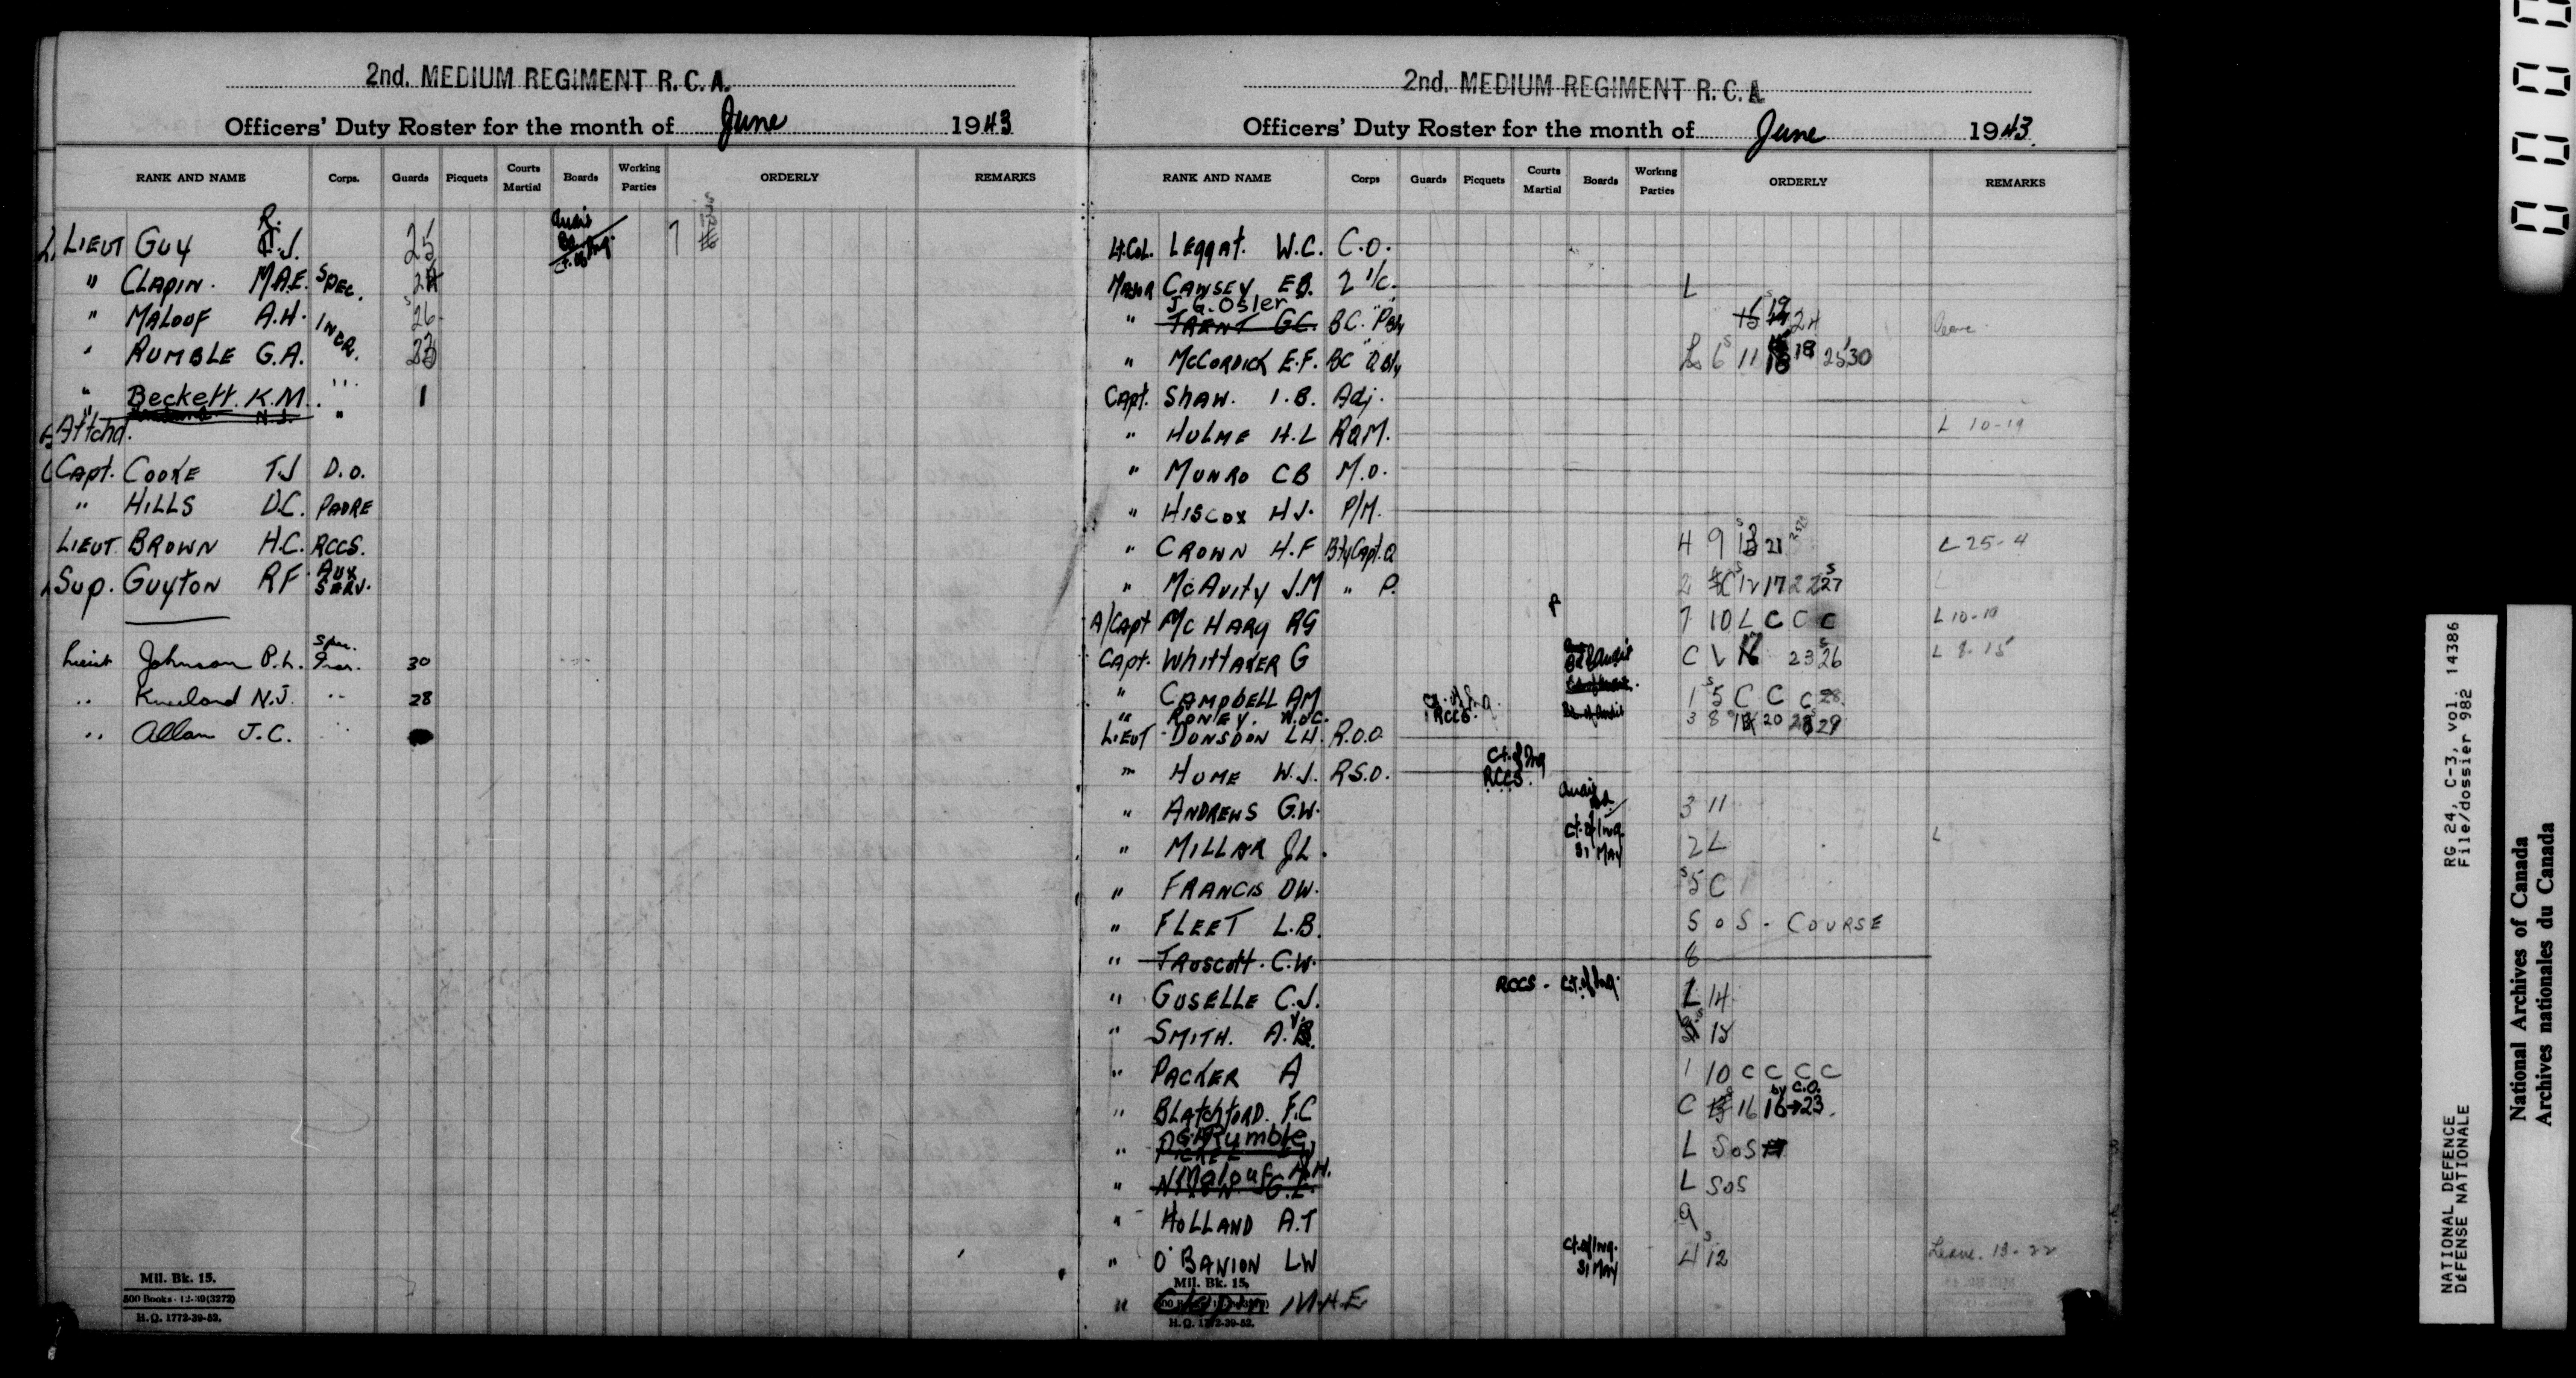 2nd. MEDIUM REGIMENT R.C.A.
Officers' Duty Roster for the month of June 1943
RANK AND NAME Corps. Guards Picquets Courts Martial Boards Working Parties ORDERLY REMARKS
LIEUT GUY R.J. 25 7
" CLAPIN. M.A.E. SPEC.
" MALOUF A.H. INCR. 26
" RUMBLE G.A. 23
" Beckett K.M. " 1
" N.J. "
Attchd.
Capt. COOKE T.J D.O.
" HILLS D.C. PADRE
LIEUT BROWN H.C. RCCS.
Sup. GUYTON RF AUX SERV.
Lieut Johnson P.L. Spec. Incr. 30
" Kneeland N.J. " 28
" Allan J.C. "
Mil. Bk. 15.
500 Books-12-39(3272)
H.Q. 1772-39-52.
2nd. MEDIUM REGIMENT R.C.A.
Officers' Duty Roster for the month of June 1943.
RANK AND NAME Corps Guards Picquets Courts Martial Boards Working Parties ORDERLY REMARKS
Lt.Col. Leggat. W.C. C.O.
Major CAWSEY E.B. 2 I/C. L
J.G. Osler
" TARNT G.C. BC. "P" Bty 24 leave
" McCORDICK E.F. BC "Q" Bty 6 11 18 25 30
Capt. SHAW. I.B. Adj.
" HULME H.L RQM. L 10-19
" MUNRO CB M.O.
" HISCOX H.J. P/M.
" CROWN H.F Bty Capt. Q 4 9 13 21 L 25-4
" McAvity J.M " P. 2 12 17 22 27
A/Capt McHARG RG 7 10 L C C C L 10-19
Capt. WHITTAKER G Bd of Audit C L 16 23 26 L 8-15
" CAMPBELL AM 1 5 C C C 28
" RONEY. W.J.C. RCCS. Bd. of Audit 3 8 20 29
LIEUT DONSDON L.H. R.O.O.
" HUME W.J. R.S.O. Ct. of Inq RCCS.
" ANDREWS G.W. Audit Bd. 3 11
" MILLAR J.L. Ct. of Inq. 31 May 2 L L
" FRANCIS D.W. 5 C
" FLEET L.B. S O S - COURSE
" TRUSCOTT. C.W. 8
" GUSELLE C.J. RCCS - Ct. of Inq. L 14
" SMITH. A.V. 15
" PACKER A 1 10 C C C C
" BLATCHFORD. F.C C 16 16→23. by C.O.
" G.A. Rumble L SOS
" Malouf A.H. L SOS
" HOLLAND A.T 9
" O'BANION LW Ct. of Inq. 31 May 4 12 Leave. 13-22
Mil. Bk. 15.
" Clapin M.A.E
H.Q. 1772-39-52.
NATIONAL DEFENCE RG 24, C-3, vol. 14386
DÉFENSE NATIONALE File/dossier 982
National Archives of Canada
Archives nationales du Canada